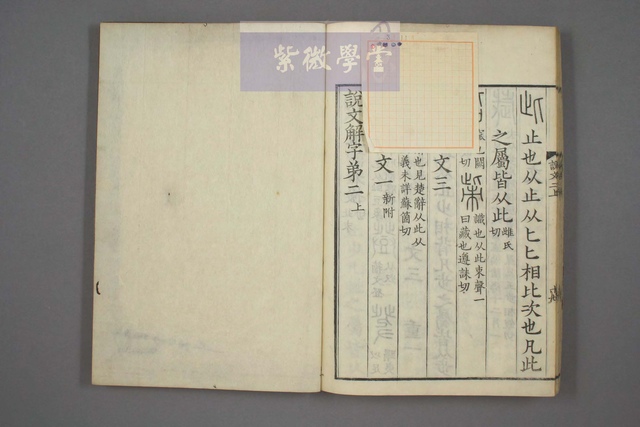 紫微學堂
止也从止从匕匕相比次也凡此
之屬皆从此 雌氏切
窳也闕
切
識也从此朿聲一
曰藏也遵誄切
文三
也見楚辭从此从
義未詳蘇箇切
文一 新附
說文解字弟二 上
說文二上